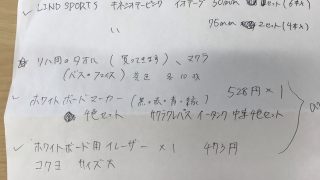 ✓ LIND SPORTS キネシオテーピング イオテープ 50mm セット(6本入)
〃 75mm 2セット(4本入)
リハ用のタオル (買ってきます)、マクラ
(バス・フェイス) 各色 各10枚
✓ ホワイトボードマーカー (黒・赤・青・緑) 528円 × 1
4色セット サクラクレパス イータック 中字4色セット
✓ ホワイトボード用イレーザー × 1 473円
コクヨ サイズ大